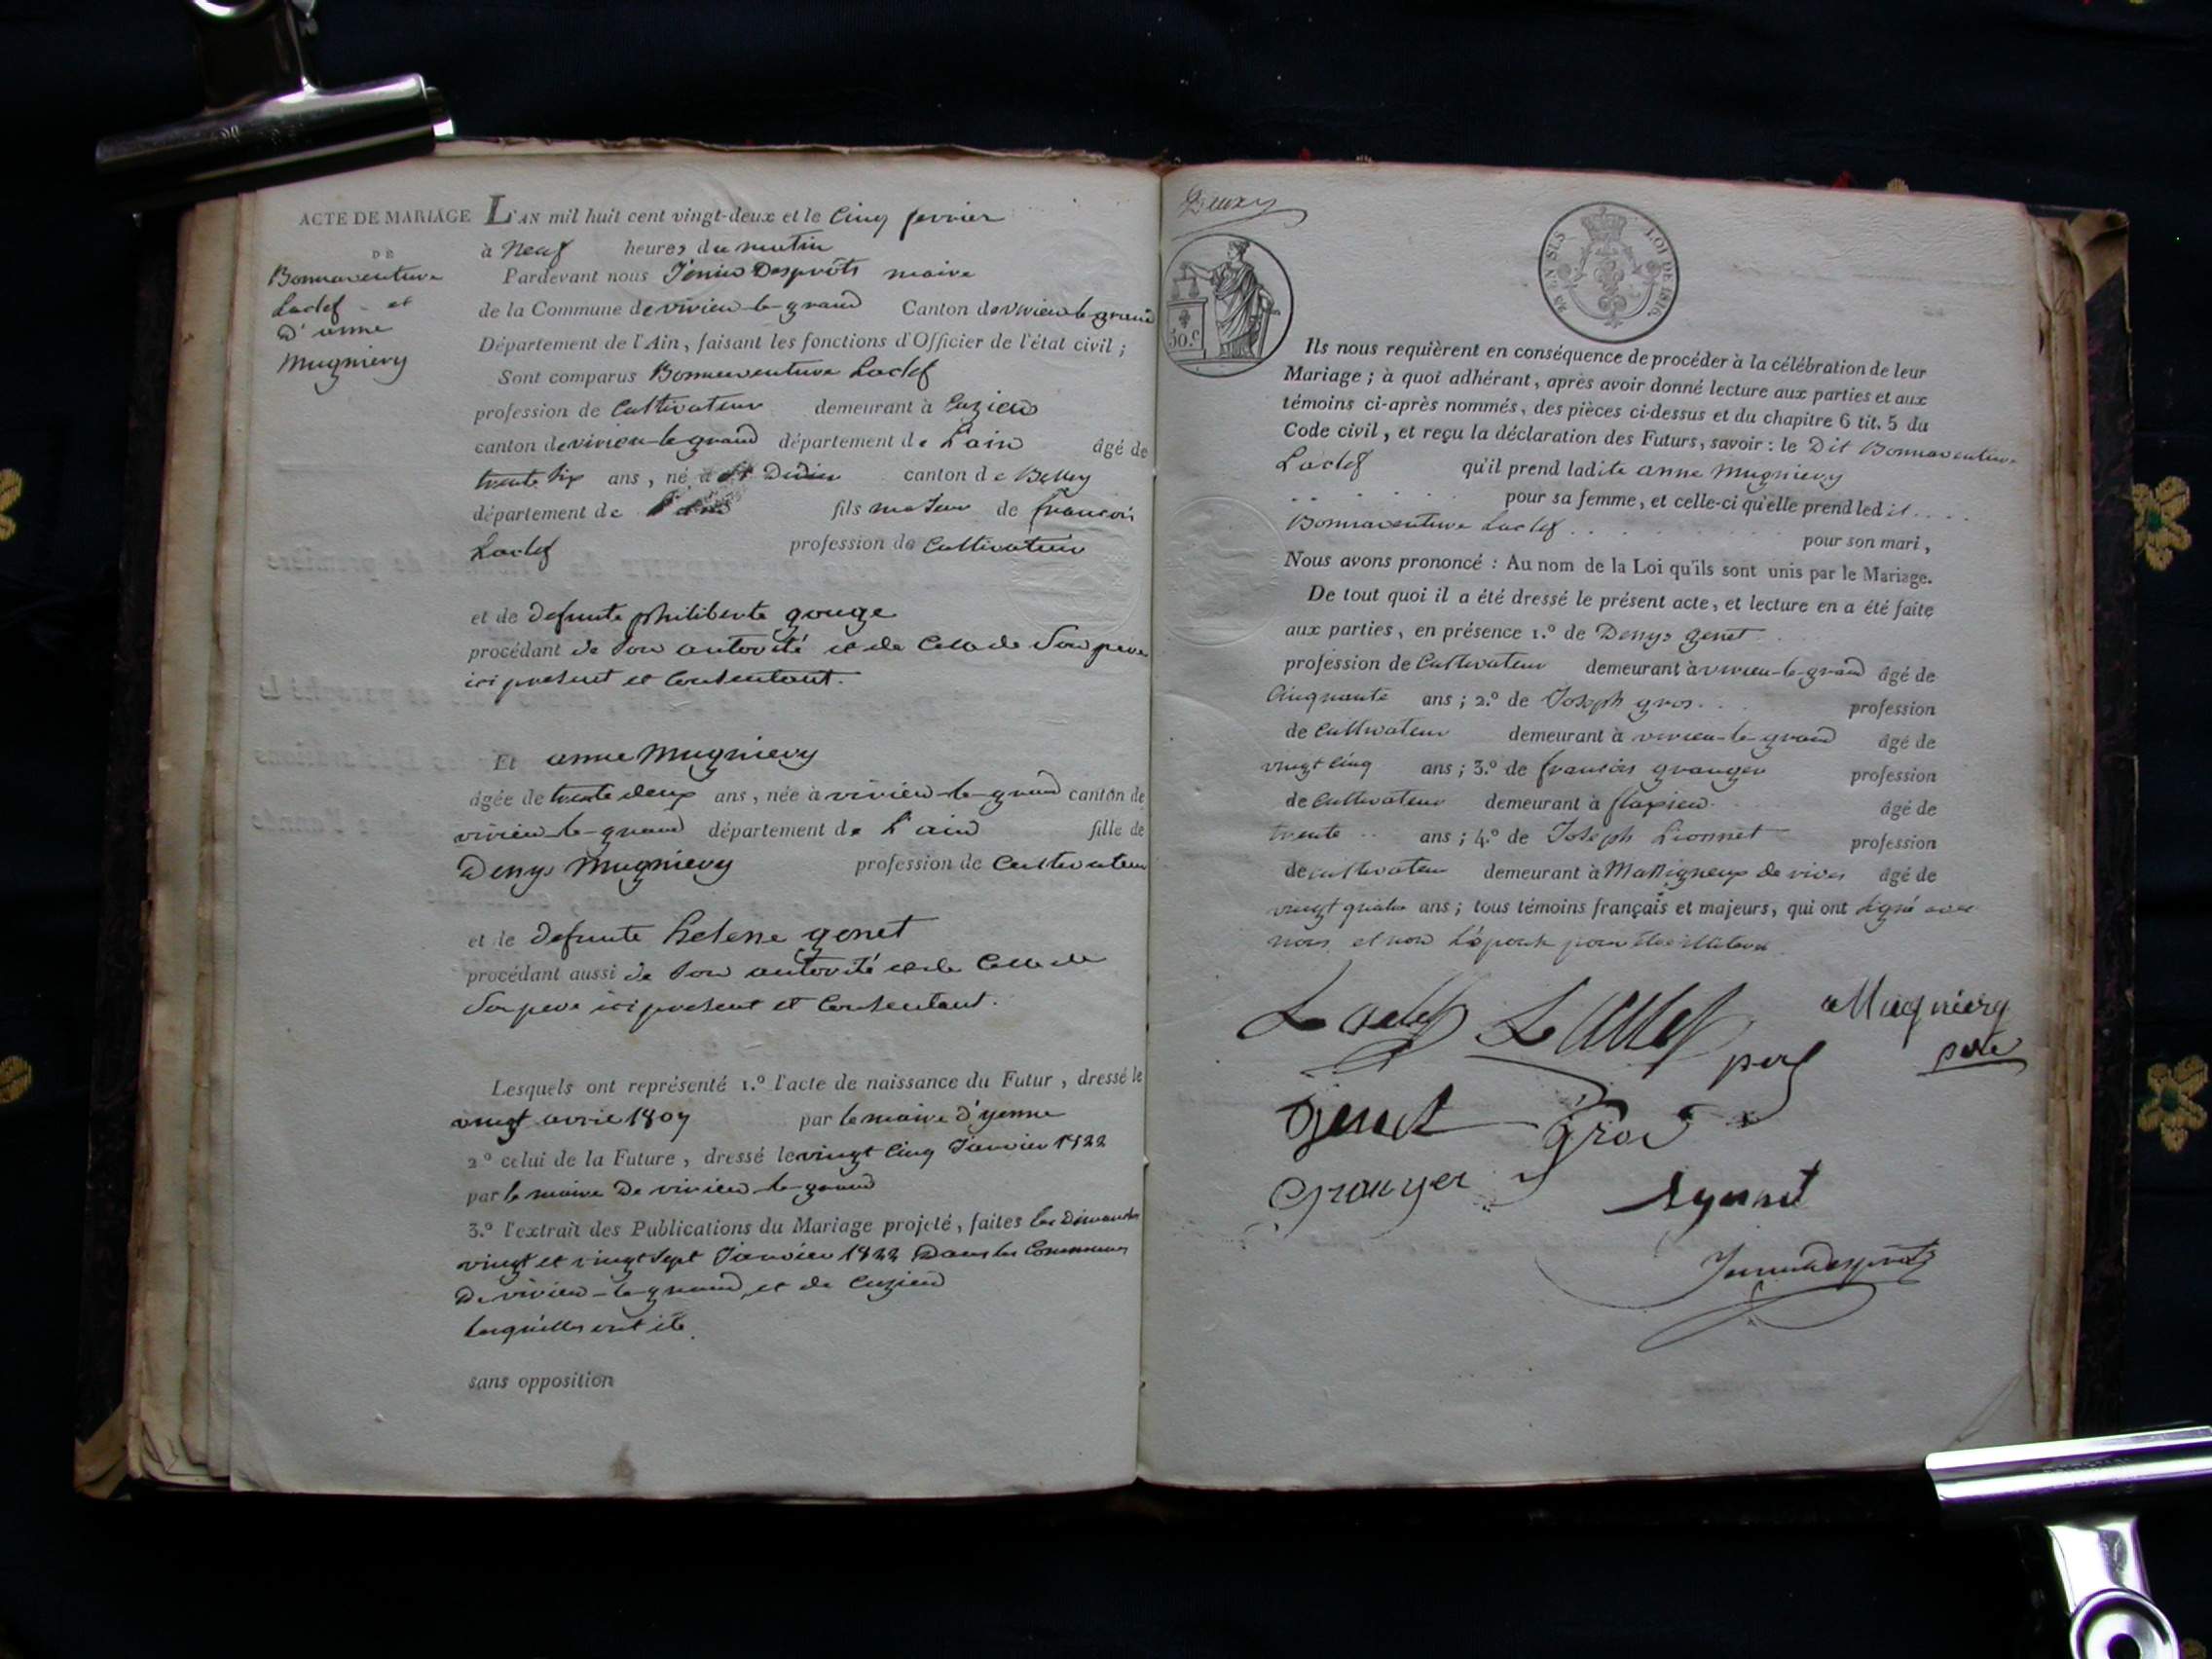 ACTE DE MARIAGE
DE
Bonnaventure
Laclef et
D'anne
Mugniery
L'AN mil huit cent vingt-deux et le cinq fevrier
à neuf heures du matin
Pardevant nous Jenin Desprôts maire
de la Commune de virieu-le-grand Canton de virieu le grand
Département de l'Ain, faisant les fonctions d'Officier de l'état civil ;
Sont comparus Bonnaventure Laclef
profession de Cultivateur demeurant à Cuzieu
canton de virieu-le-grand département de L'ain âgé de
trente six ans, né à St Didier canton de Belley
département de L'ain fils majeur de francois
Laclef profession de Cultivateur
et de defunte philiberte gouge
procédant de son autorité et de Celle de Son pere
ici present et Consentant.
Et anne Mugniery
âgée de trente deux ans, née à virieu-le-grand canton de
virieu-le-grand département de L'ain fille de
Denys Mugniery profession de Cultivateur
et de defunte helene genet
procédant aussi de son autorité et de Celle de
Son pere ici present et Consentant.
Lesquels ont représenté 1.º l'acte de naissance du Futur, dressé le
vingt avril 1807 par le maire d'yenne
2º celui de la Future, dressé le vingt cinq Janvier 1822
par le maire De virieu-le-grand
3.º l'extrait des Publications du Mariage projeté, faites les dimanches
vingt et vingt sept Janvier 1822 Dans les Communes
De virieu-le-grand et de Cuzieu
lesquelles ont été
sans opposition
30.C
LOI DE 1816.
Ils nous requièrent en conséquence de procéder à la célébration de leur
Mariage ; à quoi adhérant, après avoir donné lecture aux parties et aux
témoins ci-après nommés, des pièces ci-dessus et du chapitre 6 tit. 5 du
Code civil, et reçu la déclaration des Futurs, savoir : le Dit Bonnaventure
Laclef qu'il prend ladite anne Mugniery
pour sa femme, et celle-ci qu'elle prend ledit
Bonnaventure Laclef pour son mari,
Nous avons prononcé : Au nom de la Loi qu'ils sont unis par le Mariage.
De tout quoi il a été dressé le présent acte, et lecture en a été faite
aux parties, en présence 1.º de Denys genet
profession de Cultivateur demeurant à virieu-le-grand âgé de
Cinquante ans ; 2.º de Joseph gros profession
de Cultivateur demeurant à virieu-le-grand âgé de
vingt cinq ans ; 3.º de francois granger profession
de Cultivateur demeurant à flaxieu âgé de
trente ans ; 4.º de Joseph Lionnet profession
de cultivateur demeurant à Massigneux de rives âgé de
vingt quatre ans ; tous témoins français et majeurs, qui ont signé avec
nous et non L'épouse pour
Laclef Laclef pere Mugniery
pere
genet gros
Granger Lyonnet
Jenin Desprôts